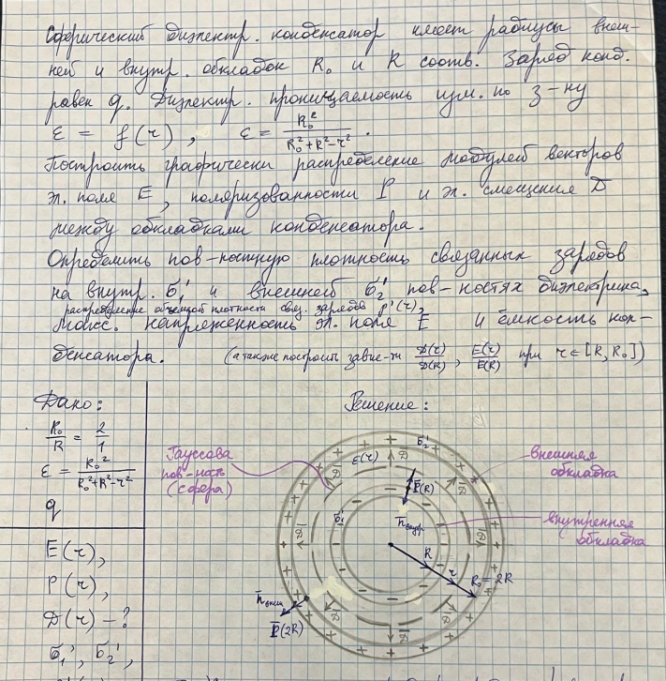 Сферический диэлектр. конденсатор имеет радиусы внеш-
ней и внутр. обкладок R₀ и R соотв. Заряд конд.
равен q. Диэлектр. проницаемость изм. по з-ну
ε = f(r), ε = R₀² / (R₀² + R² − r²).
Построить графически распределение модулей векторов
эл. поля E, поляризованности P и эл. смещения D
между обкладками конденсатора.
Определить пов-ностную плотность связанных зарядов
на внутр. σ₁' и внешней σ₂' пов-ностях диэлектрика,
распределение объемной плотности связ. зарядов ρ'(r),
Макс. напряженность эл. поля E и ёмкость кон-
денсатора. (а также построить завис-ти D(r)/D(R), E(r)/E(R) при r ∈ [R, R₀])
Дано:
R₀/R = 2/1
ε = R₀² / (R₀² + R² − r²)
q
E(r),
P(r),
D(r) – ?
σ₁', σ₂',
Решение:
Гауссова
пов-ность
(сфера)
внешняя
обкладка
внутренняя
обкладка
E(r)
σ₂'
σ₁'
P(R)
n внутр
R
r
R₀ = 2R
n внеш
P(2R)
D
D
D
D
D
D
D
D